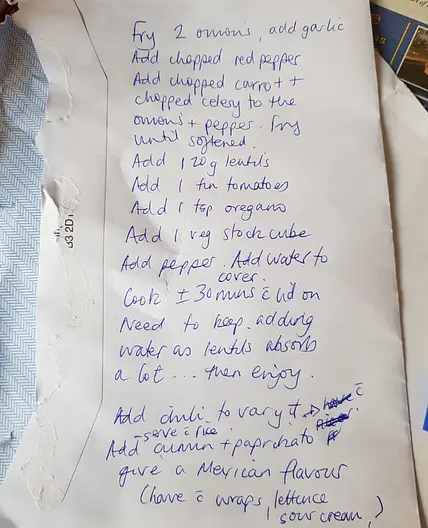 Fry 2 onions, add garlic
Add chopped red pepper
Add chopped carrot +
chopped celesy to the
onions + pepper. Fry
until softened.
Add 120g lentils
Add 1 tin tomatoes
Add 1 tsp oregano
Add 1 veg stock cube
Add pepper. Add water to
cover.
Cook ± 30 mins c̄ lid on
Need to keep adding
water as lentils absorb
a lot ... then enjoy.
Add chilli to vary it → c̄
- serve c̄ rice.
Add cumin + paprika to
give a Mexican flavour
(have c̄ wraps, lettuce
sour cream)